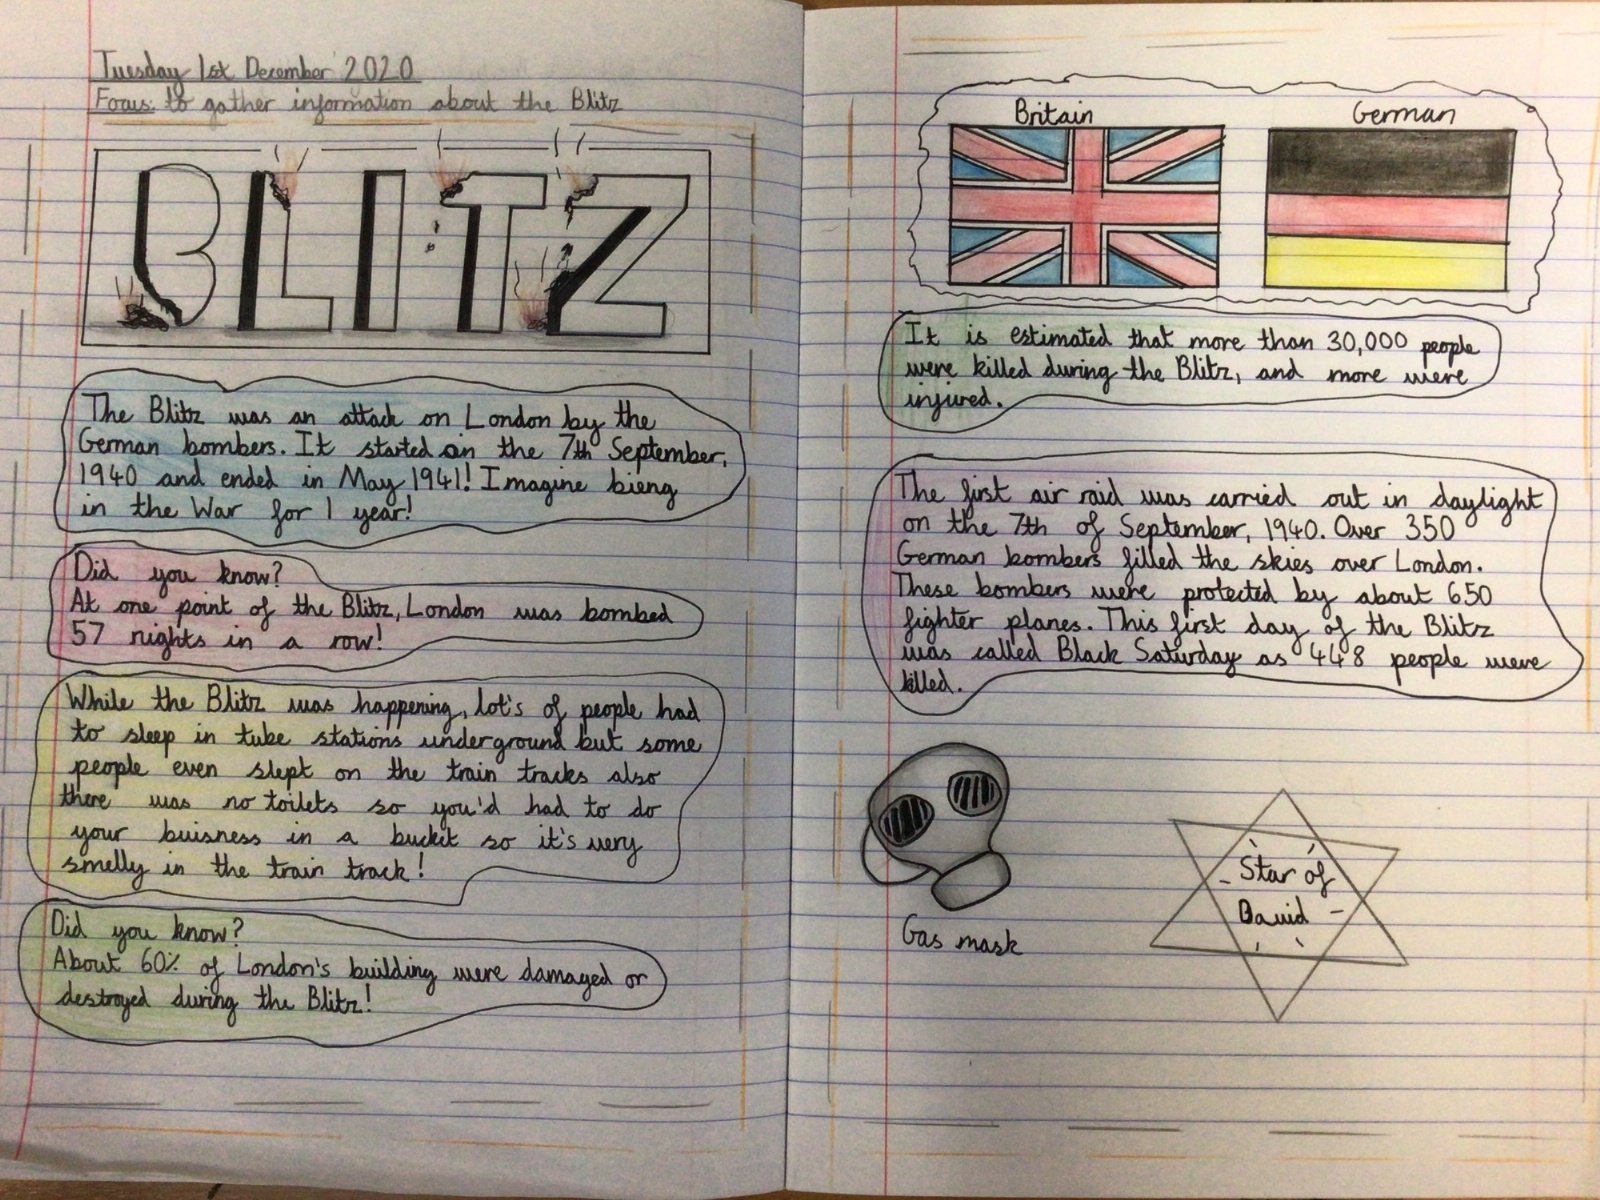 Tuesday 1st December 2020
Focus: to gather information about the Blitz
BLITZ
The Blitz was an attack on London by the
German bombers. It started on the 7th September,
1940 and ended in May 1941! Imagine bieng
in the War for 1 year!
Did you know?
At one point of the Blitz, London was bombed
57 nights in a row!
While the Blitz was happening, lot's of people had
to sleep in tube stations underground but some
people even slept on the train tracks also
there was no toilets so you'd had to do
your buisness in a bucket so it's very
smelly in the train track!
Did you know?
About 60% of London's building were damaged or
destroyed during the Blitz!
Britain
German
It is estimated that more than 30,000 people
were killed during the Blitz, and more were
injured.
The first air raid was carried out in daylight
on the 7th of September, 1940. Over 350
German bombers filled the skies over London.
These bombers were protected by about 650
fighter planes. This first day of the Blitz
was called Black Saturday as 448 people were
killed.
Gas mask
Star of
David